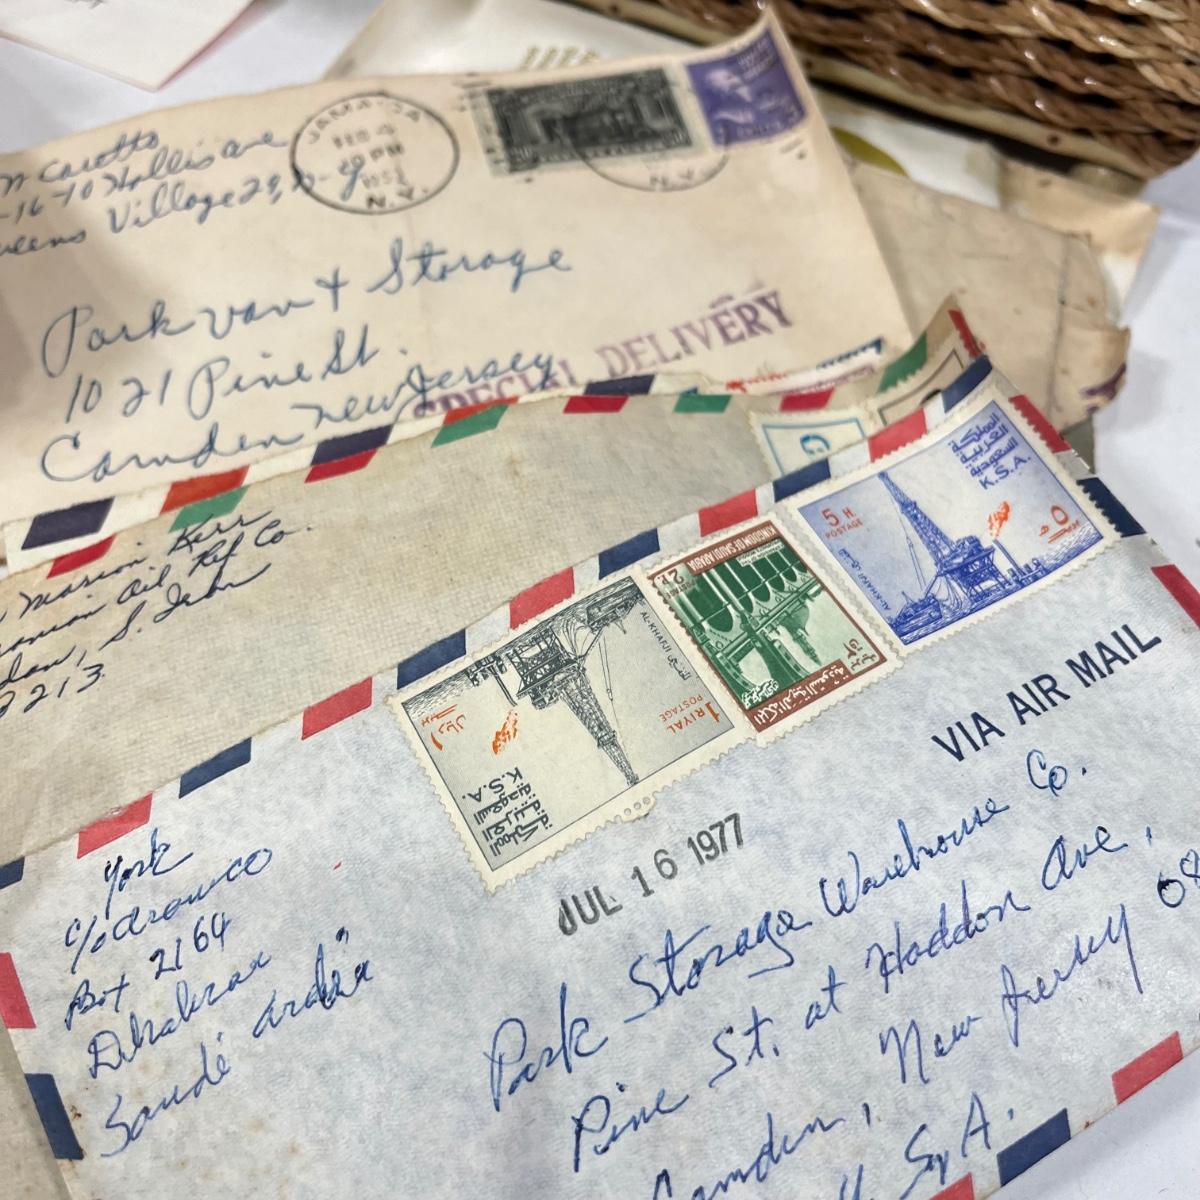 Carotto
-16 70 Hollis ave
Village 29, N-Y
JAMAICA
FEB 4
PM
N.Y.
N.Y.
Park van & Storage
1021 Pine St.
Camden New Jersey
SPECIAL DELIVERY
Marion Kerr
Oil Ref Co.
S. Iran
2213
المملكة
العربية
السعودية
K.S.A.
5 H
POSTAGE
AL-KHAFJI
KINGDOM OF SAUDI ARABIA
2 P.
AL-KHAFJI
1 RIYAL
POSTAGE
المملكة
العربية
السعودية
K.S.A.
VIA AIR MAIL
JUL 16 1977
York
c/o Aramco
Box 2164
Dhahran
Saudi Arabia
Park Storage Warehouse Co.
Pine St. at Haddon Ave,
Camden, New Jersey 08
U.S.A.